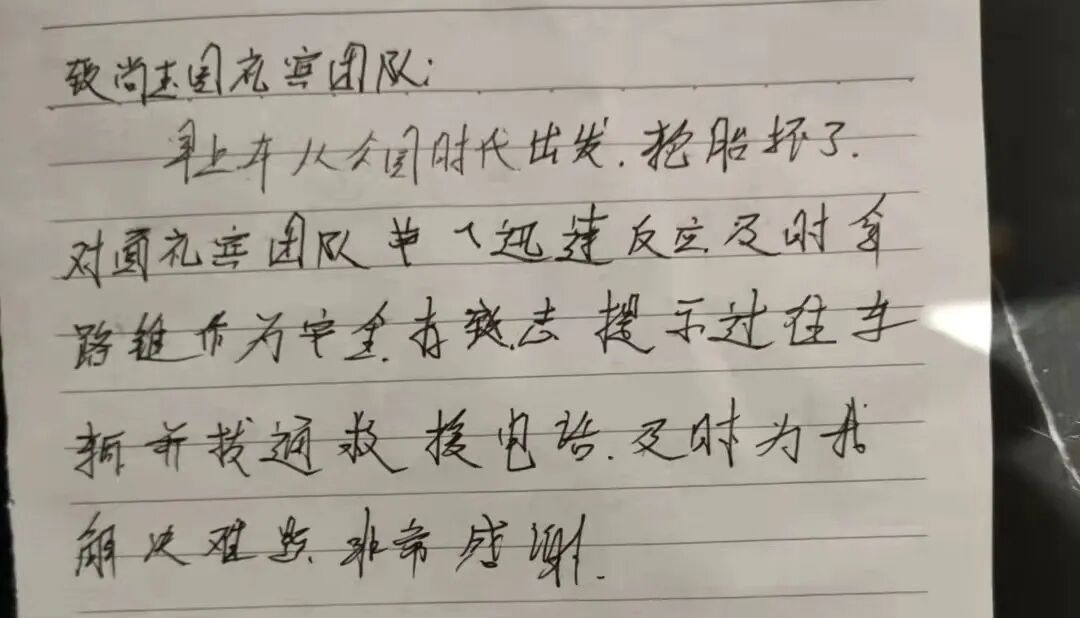 致尚志园礼宾团队:
早上车从公园时代出发.抱胎坏了.
对面礼宾团队单飞迅速反应及时拿
路锥作为安全 志提示过往车
辆并拨通救援电话.及时为我
解决难题.非常感谢.